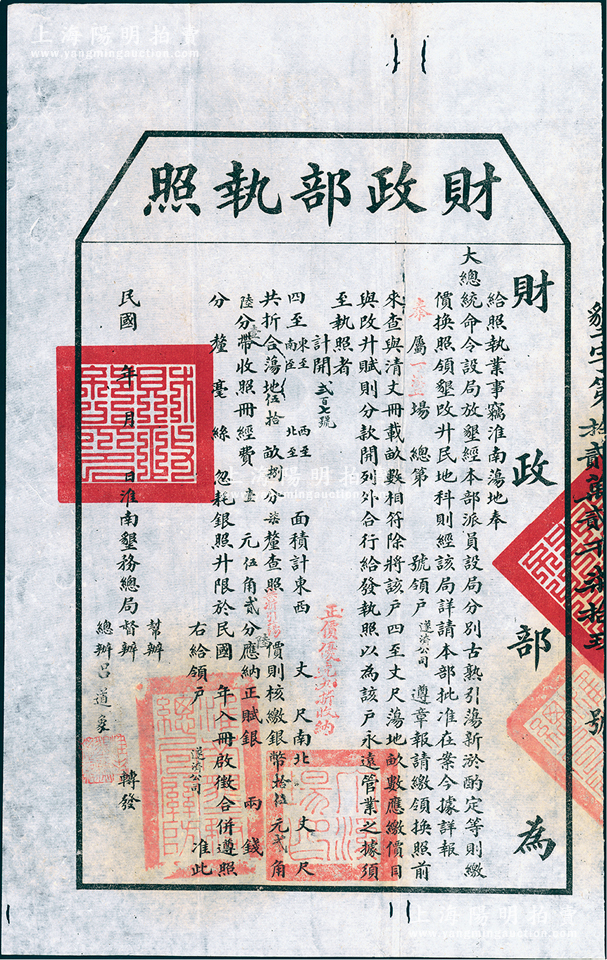 上海陽明拍賣
www.yangmingauction.com
財政部執照
字第拾貳萬貳千 號
財政部為
給照執業事竊淮南蕩地奉
大總統命令設局放墾經本部派員設局分別古熟引蕩新淤酌定等則繳
價換照領墾改升民地科則經該局詳請本部批准在案今據詳報
泰屬 場 總第 號領戶 遂濟公司 遵章報請繳領換照前
來查與清丈冊載畝數相符除將該戶四至丈尺蕩地畝數應繳價目
與改升賦則分款開列外合行給發執照以為該戶永遠管業之據須
至執照者
計開 貳百七號
四至 東至 西至 南至 北至 面積計東西 丈 尺南北 丈 尺
共折合蕩地伍拾 畝捌分 釐查照 價則核繳銀幣拾伍元貳角
陸分帶收照冊經費壹 元伍角貳分應納正賦銀 兩 錢
分 釐 毫 絲 忽耗銀照升限於民國 年入冊啟徵合併遵照
右給領戶 遂濟公司 准此
正價優免 折收納
民國 年 月 日淮南墾務總局 督辦 幫辦 總辦呂道象 轉發
上海陽明拍賣
www.yangmingauction.com
上海陽明拍賣
www.yangmingauction.com